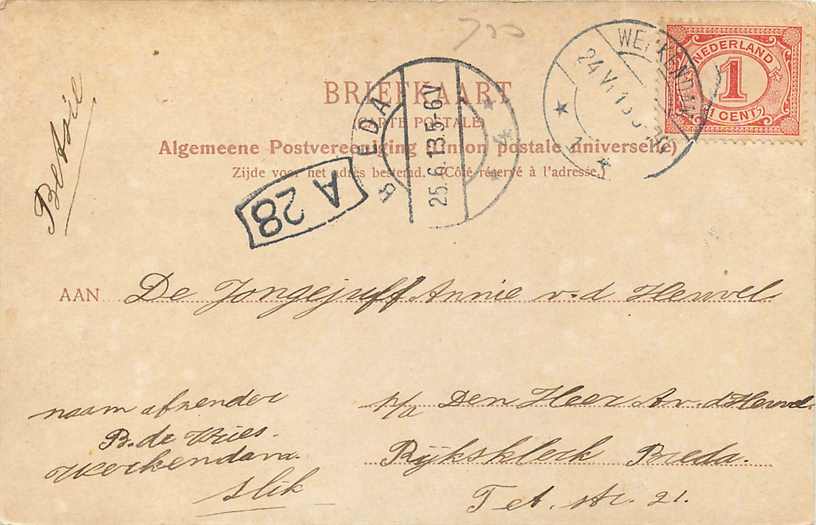 700
Betsie
BRIEFKAART
(CARTE POSTALE)
Algemeene Postvereeniging (Union postale universelle)
Zijde voor het adres bestemd. (Côté réservé à l'adresse.)
WERKENDAM
24 VI 13
BREDA
25.6.13.5-6V
4
A 28
NEDERLAND
1
1 CENT
AAN De Jongejuff Annie v.d Heuvel
p/a Den Heer A v. d Heuvel
Rijksklerk Breda.
Tet. str. 21.
naam afzender
B. de Vries
Werkendam
Slik